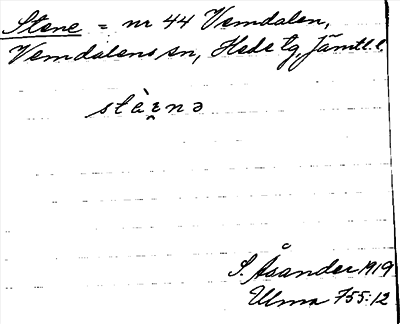 Stene = nr 44 Vemdalen,
Vemdalens sn, Hede tg, Jämtl. l.
stὲ̱nə
S. Åsander 1919
Ulma 755:12